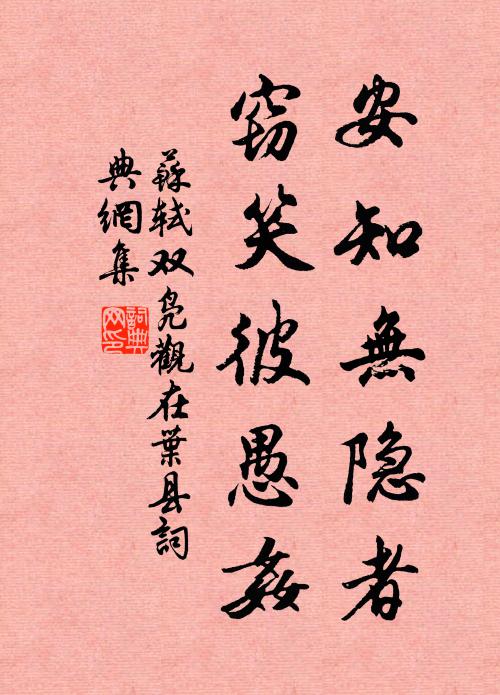 安知無隐者
窃笑彼愚姦
蘇轼双凫觀在葉县詞
典網集
詞典
网印